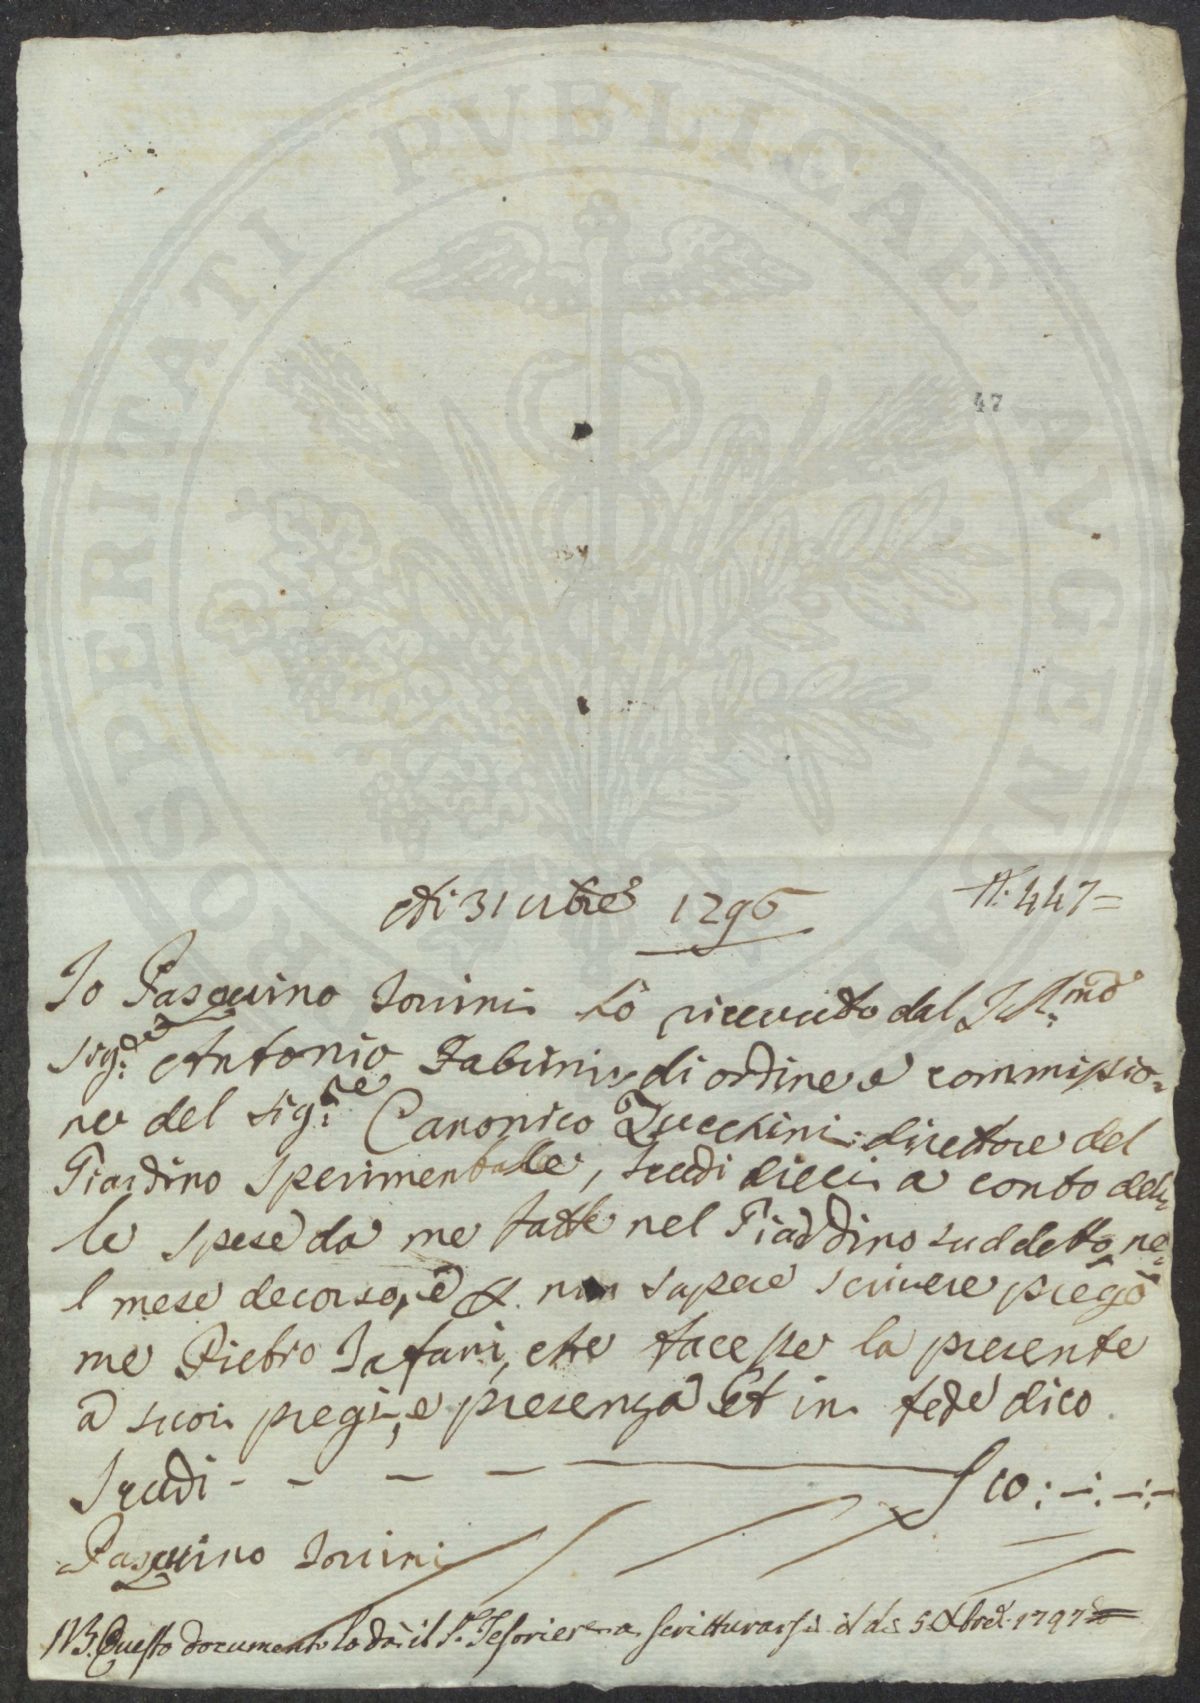 PROSPERITATI PVBLICAE AVGENDAE
47
Adi 31 Xbre 1796 N. 447=
Io Pasquino Iovini hò ricevuto dal Ill.mo
Sig.re Antonio Fabrini, di ordine e commissio=
ne del Sig.re Canonico Zucchini direttore del
Giardino Sperimentalle, Scudi dieci a conto del=
le spese da me fatte nel Giardino suddetto ne=
l mese decorso, e p. non sapere scrivere pregò
me Pietro Tafani, che facesse la presente
a suoi pregi, e presenza Et in fede dico
Scudi - - - - 10:-:-:-
Pasquino Iovini
NB. Questo documento lo dà il S. Tesoriere a scritturarsi il dì 5 Xbre 1797